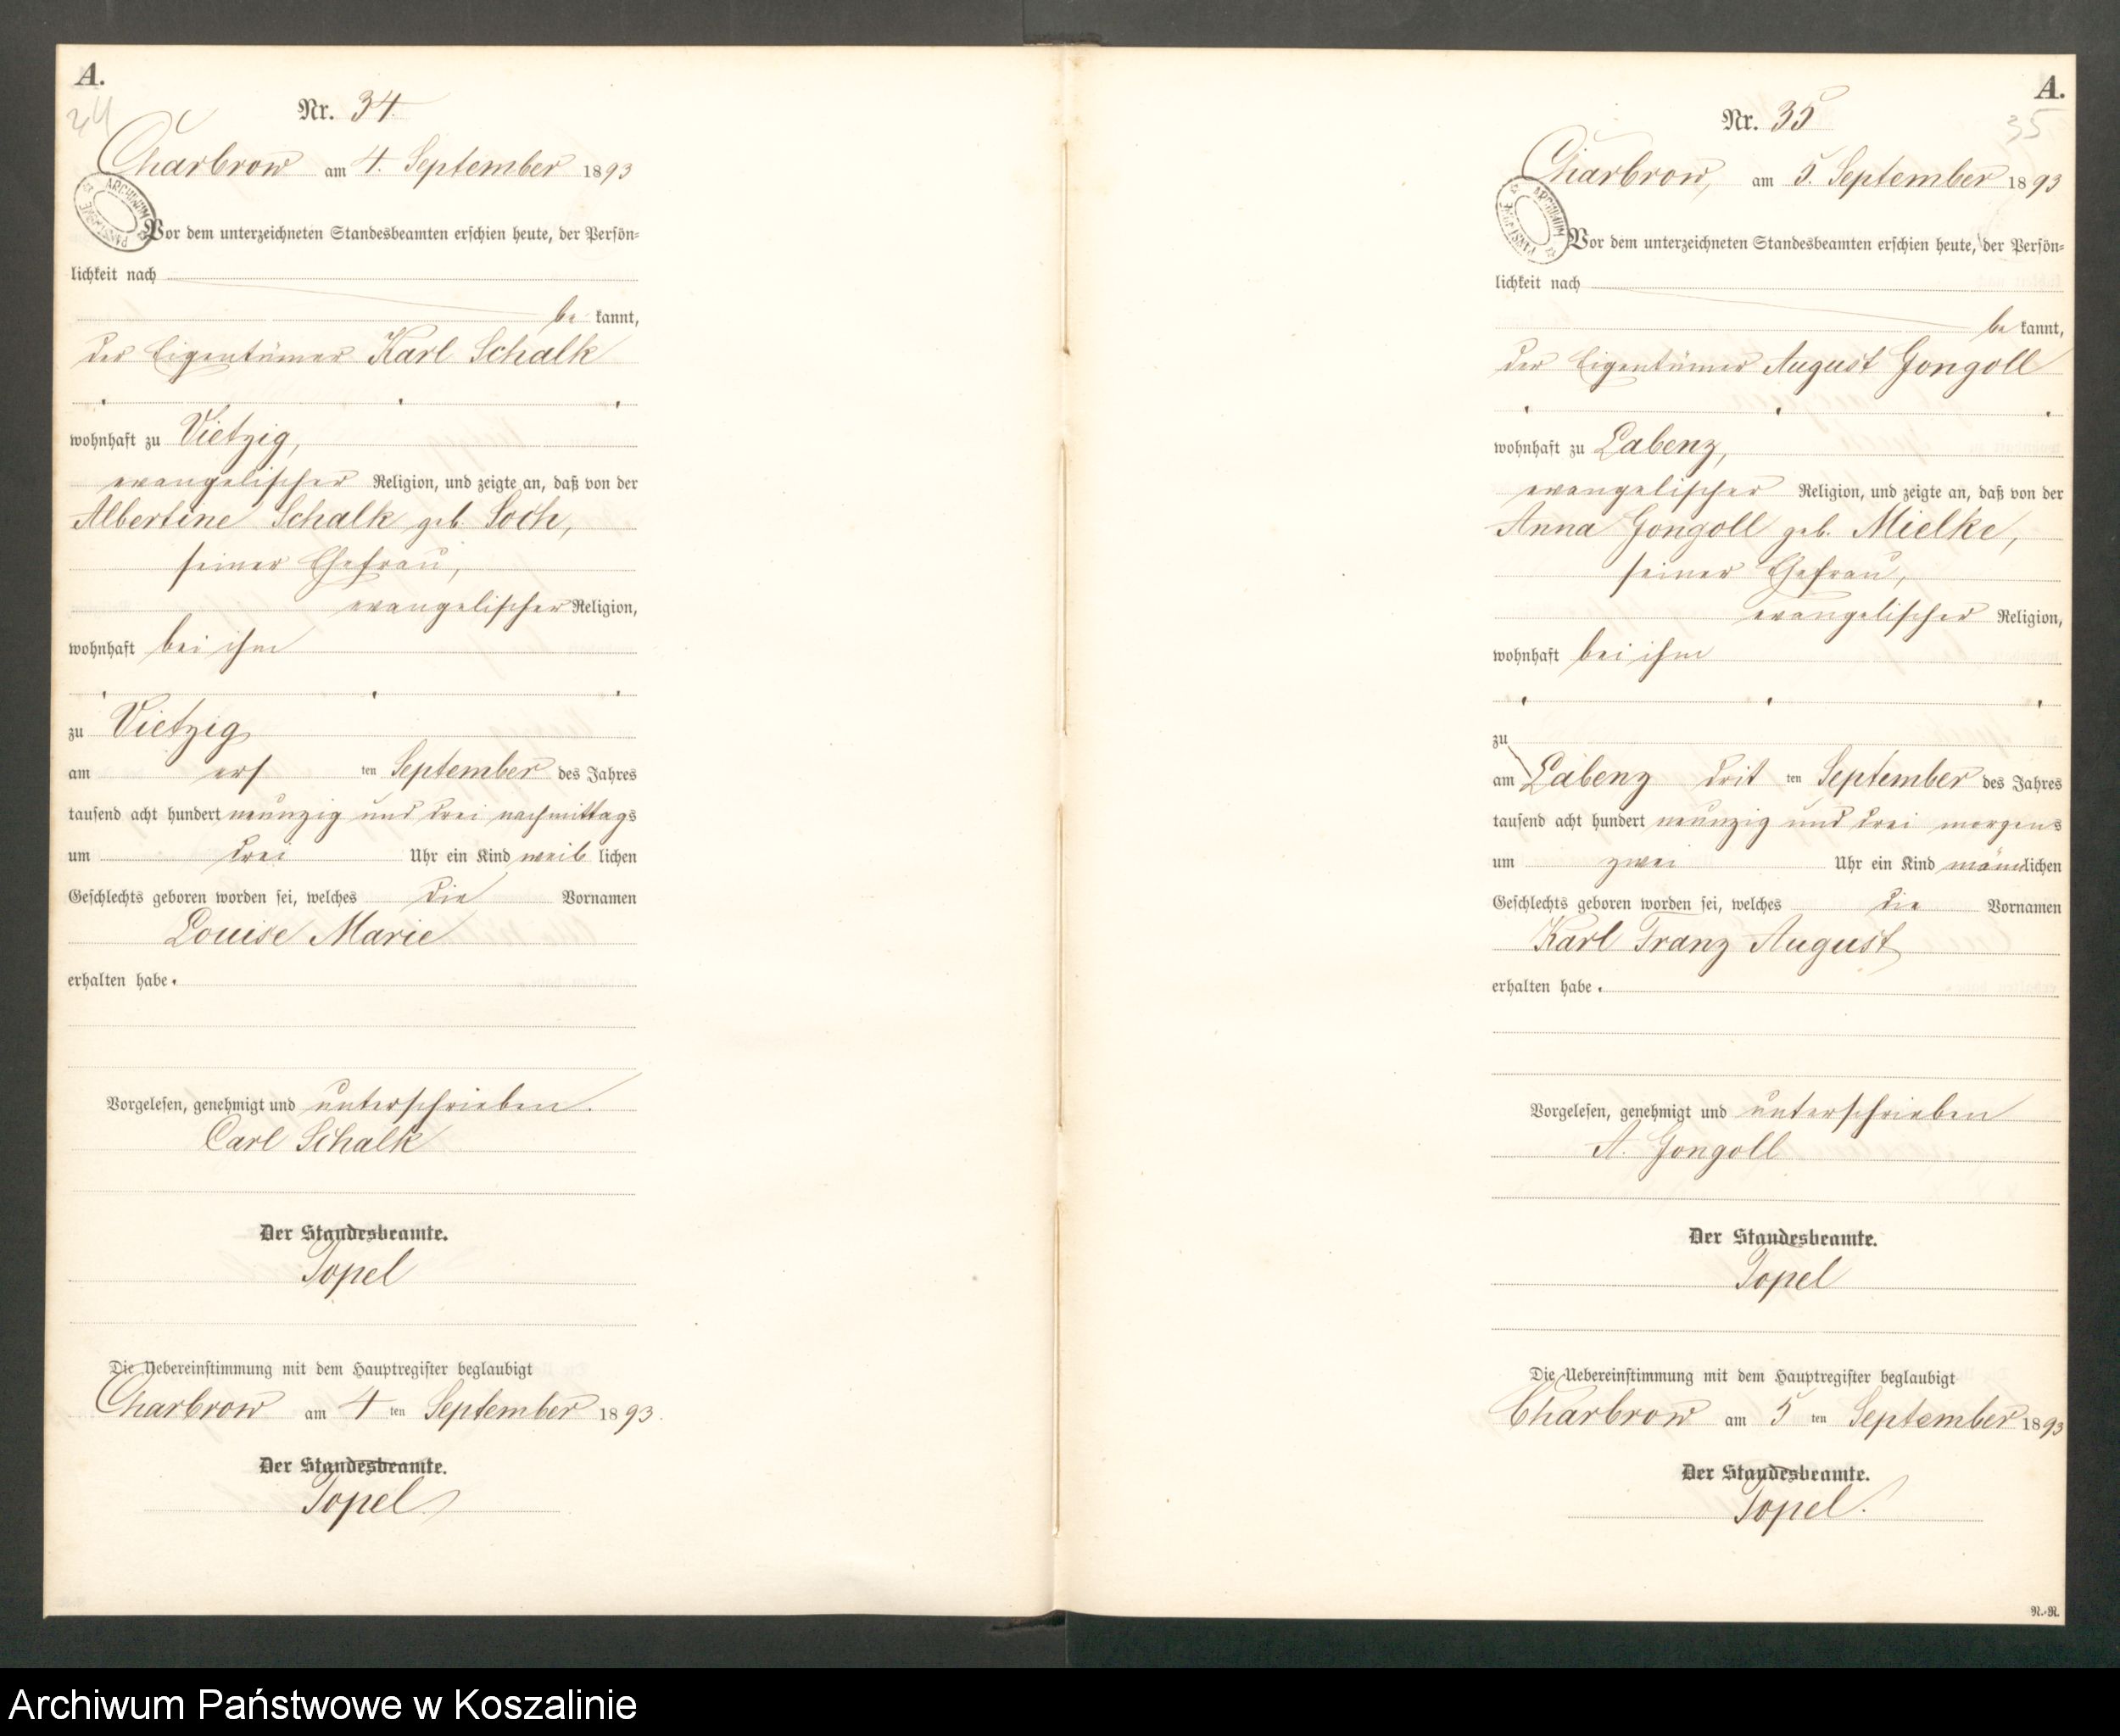 A.
34
Nr. 34.
Charbrow am 4. September 1893
ARCHIWUM PAŃSTWOWE
Vor dem unterzeichneten Standesbeamten erschien heute, der Persön=
lichkeit nach
be kannt,
der Eigentümer Karl Schalk
wohnhaft zu Vietzig,
evangelischer Religion, und zeigte an, daß von der
Albertine Schalk geb. Soch,
seiner Ehefrau,
evangelischer Religion,
wohnhaft bei ihm
zu Vietzig
am ers ten September des Jahres
tausend acht hundert neunzig und drei nachmittags
um drei Uhr ein Kind weib lichen
Geschlechts geboren worden sei, welches die Vornamen
Louise Marie
erhalten habe.
Vorgelesen, genehmigt und unterschrieben.
Carl Schalk
Der Standesbeamte.
Topel
Die Uebereinstimmung mit dem Hauptregister beglaubigt
Charbrow am 4 ten September 1893.
Der Standesbeamte.
Topel
A.
35
Nr. 35
Charbrow, am 5. September 1893
ARCHIWUM PAŃSTWOWE
Vor dem unterzeichneten Standesbeamten erschien heute, der Persön=
lichkeit nach
be kannt,
der Eigentümer August Gongoll
wohnhaft zu Labenz,
evangelischer Religion, und zeigte an, daß von der
Anna Gongoll geb. Mielke,
seiner Ehefrau,
evangelischer Religion,
wohnhaft bei ihm
zu
am Labenz drit ten September des Jahres
tausend acht hundert neunzig und drei morgens
um zwei Uhr ein Kind männlichen
Geschlechts geboren worden sei, welches die Vornamen
Karl Franz August
erhalten habe.
Vorgelesen, genehmigt und unterschrieben
A. Gongoll
Der Standesbeamte.
Topel
Die Uebereinstimmung mit dem Hauptregister beglaubigt
Charbrow am 5 ten September 1893
Der Standesbeamte.
Topel.
N.-N.
Archiwum Państwowe w Koszalinie